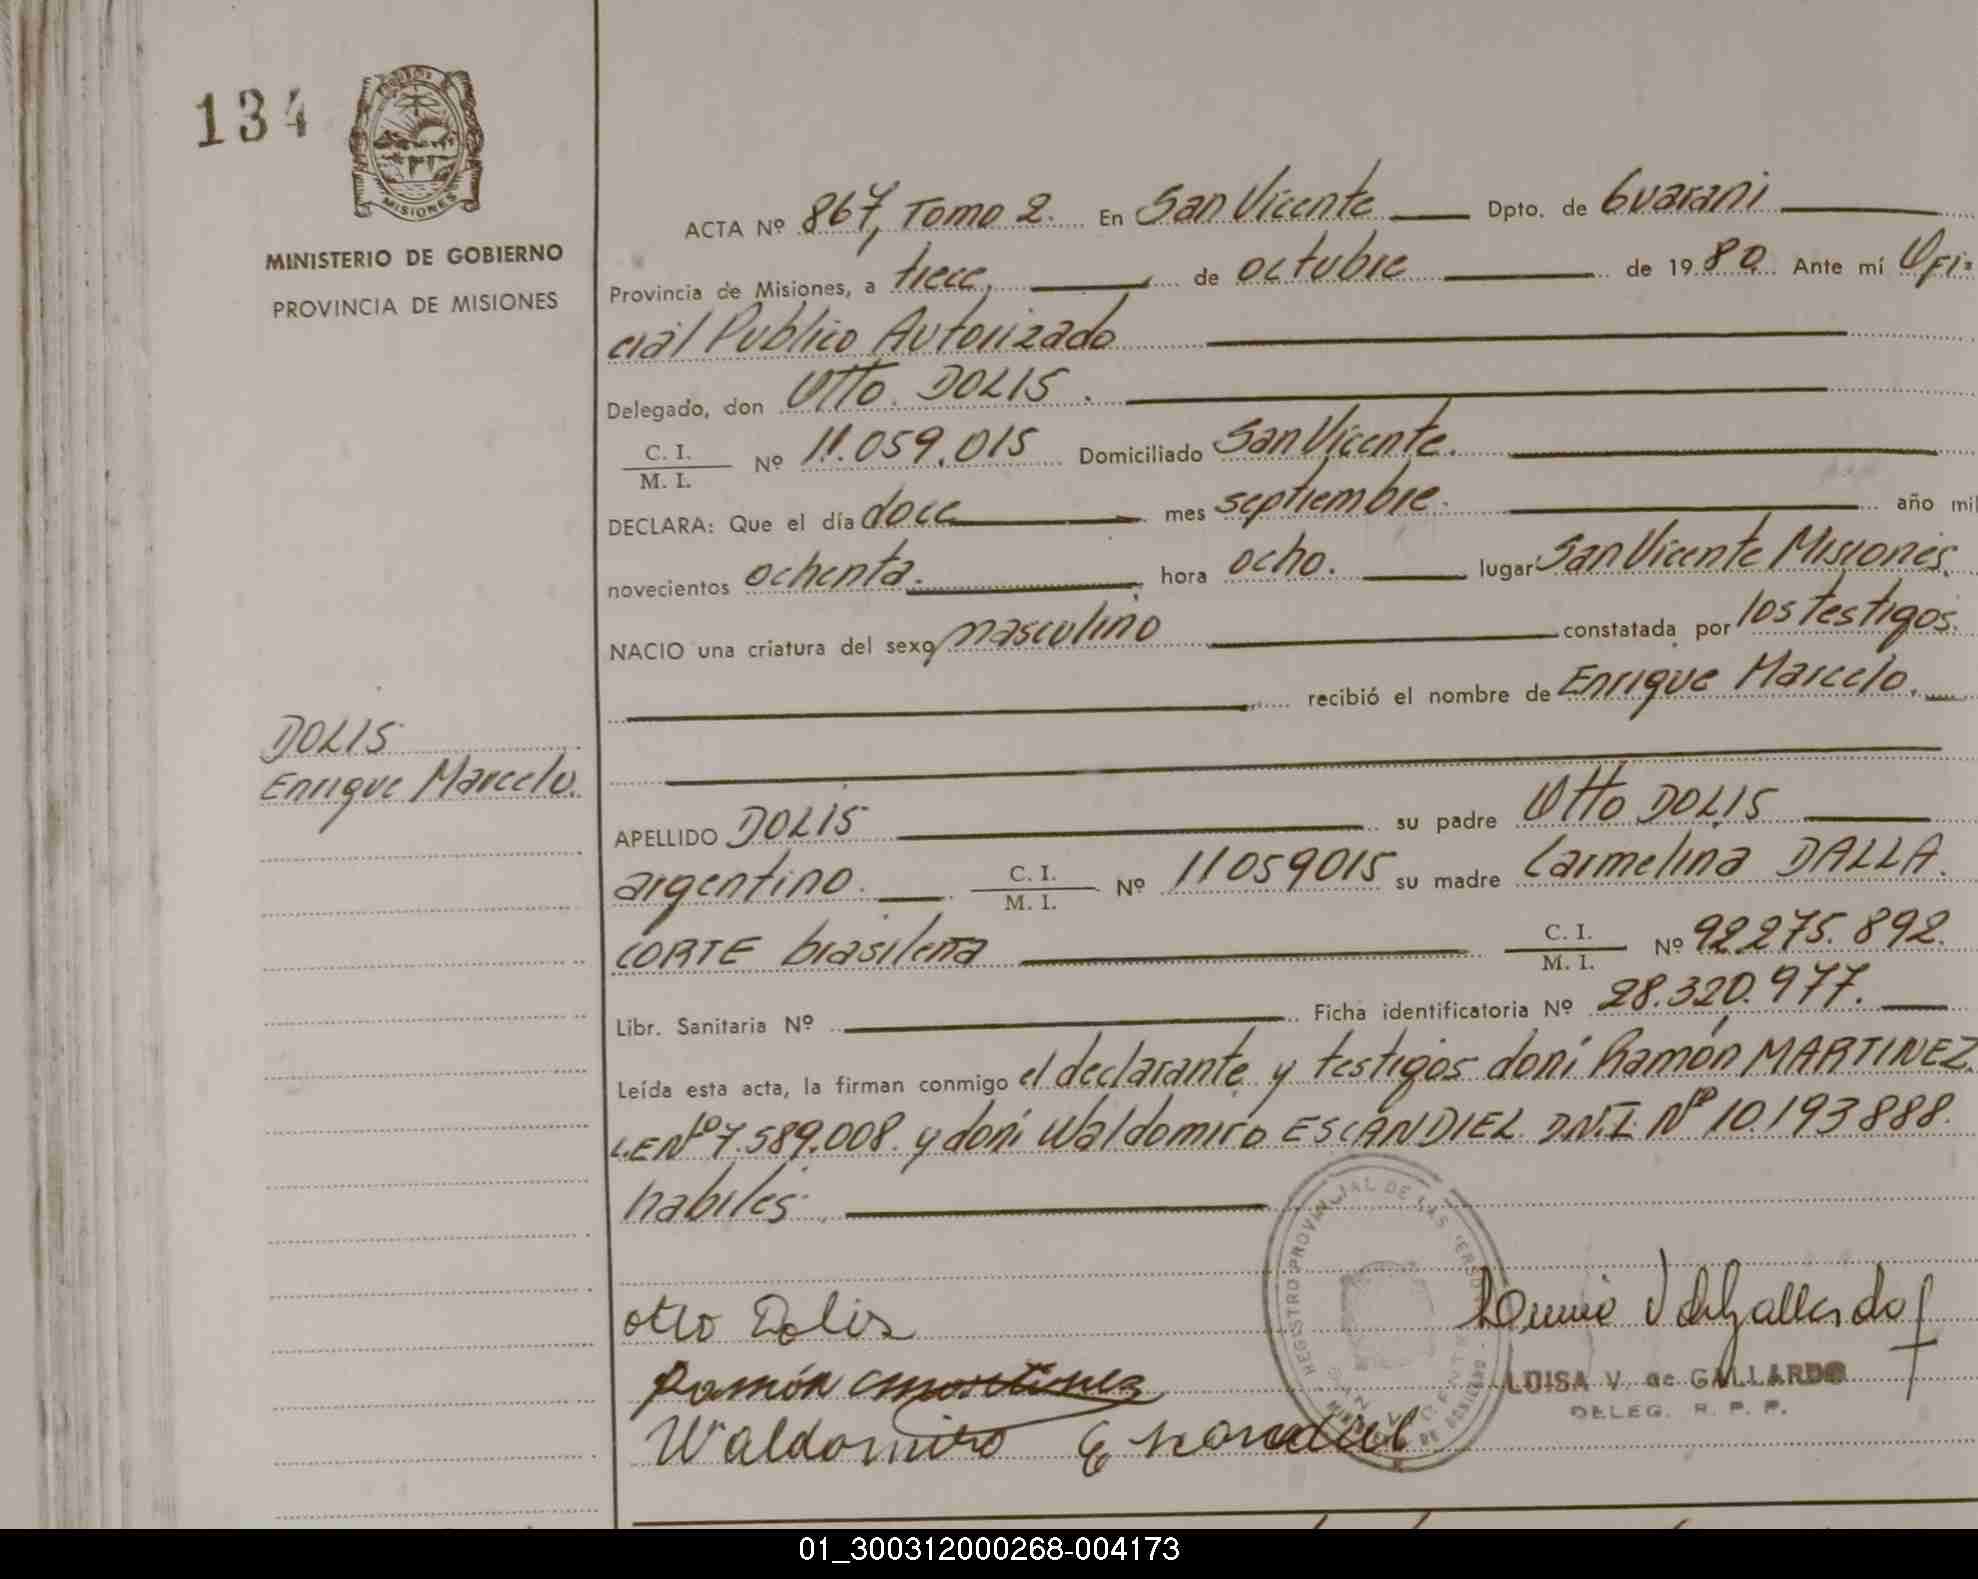 134
MISIONES
MINISTERIO DE GOBIERNO
PROVINCIA DE MISIONES
ACTA Nº 867, Tomo 2. En San Vicente Dpto. de Guarani
Provincia de Misiones, a trece, de octubre de 1980. Ante mí Ofi-
cial Publico Autorizado
Delegado, don Otto DOLIS.
C. I.
M. I. Nº 11.059.015 Domiciliado San Vicente.
DECLARA: Que el día doce mes septiembre. año mil
novecientos ochenta. hora ocho. lugar San Vicente Misiones.
NACIO una criatura del sexo masculino constatada por los testigos.
recibió el nombre de Enrique Marcelo.
DOLIS
Enrique Marcelo.
APELLIDO DOLIS su padre Otto DOLIS
argentino. C. I.
M. I. Nº 11059015 su madre Carmelina DALLA.
CORTE brasileña C. I.
M. I. Nº 92.275.892.
Libr. Sanitaria Nº Ficha identificatoria Nº 28.320.977.
Leída esta acta, la firman conmigo el declarante y testigos doni Ramón MARTINEZ.
L.E Nº 7.589.008. y doni Waldomiro ESCANDIEL D.N.I. Nº 10.193888.
habiles.
REGISTRO PROVINCIAL DE LAS PERSONAS
otto Dolis
Ramón Martinez
Waldomiro Escandiel
LUISA V. de GALLARDO
DELEG. R. P. P.
01_300312000268-004173